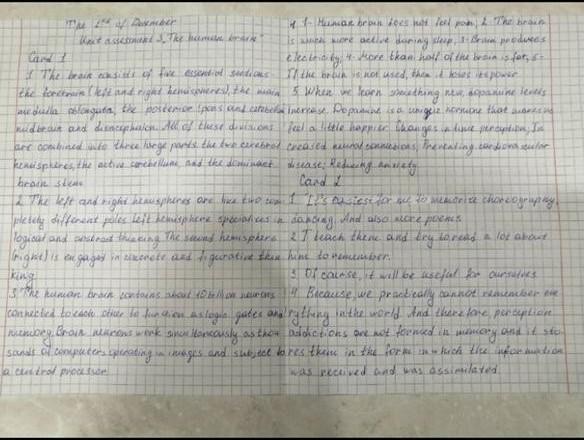 The 2nd of December
Unit assessment 3 „The human brain"
Card 1
1 The brain consists of five essential sections:
the forebrain (left and right hemispheres), the main
medulla oblongata, the posterior (pons and cerebellum
midbrain and diencephalon. All of these divisions
are combined into three large parts the two cerebral
hemispheres, the active cerebellum, and the dominant
brain stem
2 The left and right hemispheres are like two com
pletely different poles Left hemisphere specializes in
logical and abstract thinking The second hemisphere
(right) is engaged in concrete and figurative thin
king
3 The human brain contains about 10 billion neurons
connected to each other to function as logic gates and
memory. Brain neurons work simultaneously as thou
sands of computers, operating in images and subject to
a central processor
4 1- Human brain does not feel pain; 2 The brain
is much more active during sleep, 3- Brain produces
electricity; 4- More than half of the brain is fat, 5-
If the brain is not used, then it loses its power
5. When we learn something new, dopamine levels
increase. Dopamine is a unique hormone that makes us
feel a little happier Changes in time perception; In
creased neural connections, Preventing cardiovascular
disease; Reducing anxiety
Card 2
1. It's easiest for me to memorise choreography,
dancing. And also more poems
2 I teach them and try to read a lot about
him to remember.
3 Of course, it will be useful for ourselves
4 Because, we practically cannot remember eve
rything in the world And therefore, perception
addictions are not formed in memory and it sto
res them in the form in which the information
was received and was assimilated